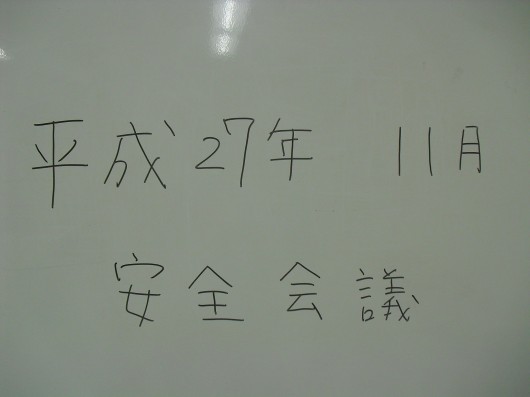 平成27年 11月
安全会議